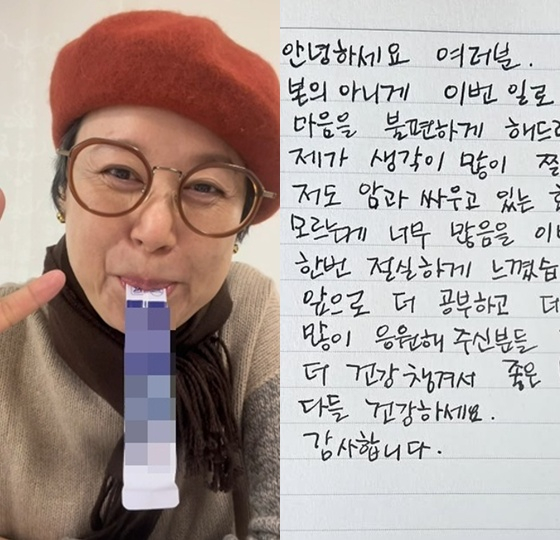 안녕하세요 여러분.
본의 아니게 이번 일로
마음을 불편하게 해드려
제가 생각이 많이
저도 암과 싸우고 있는
모르는게 너무 많음을
한번 절실하게 느꼈습
앞으로 더 공부하고 더
많이 응원해 주신분들
더 건강 챙겨서 좋은
다들 건강하세요.
감사합니다.